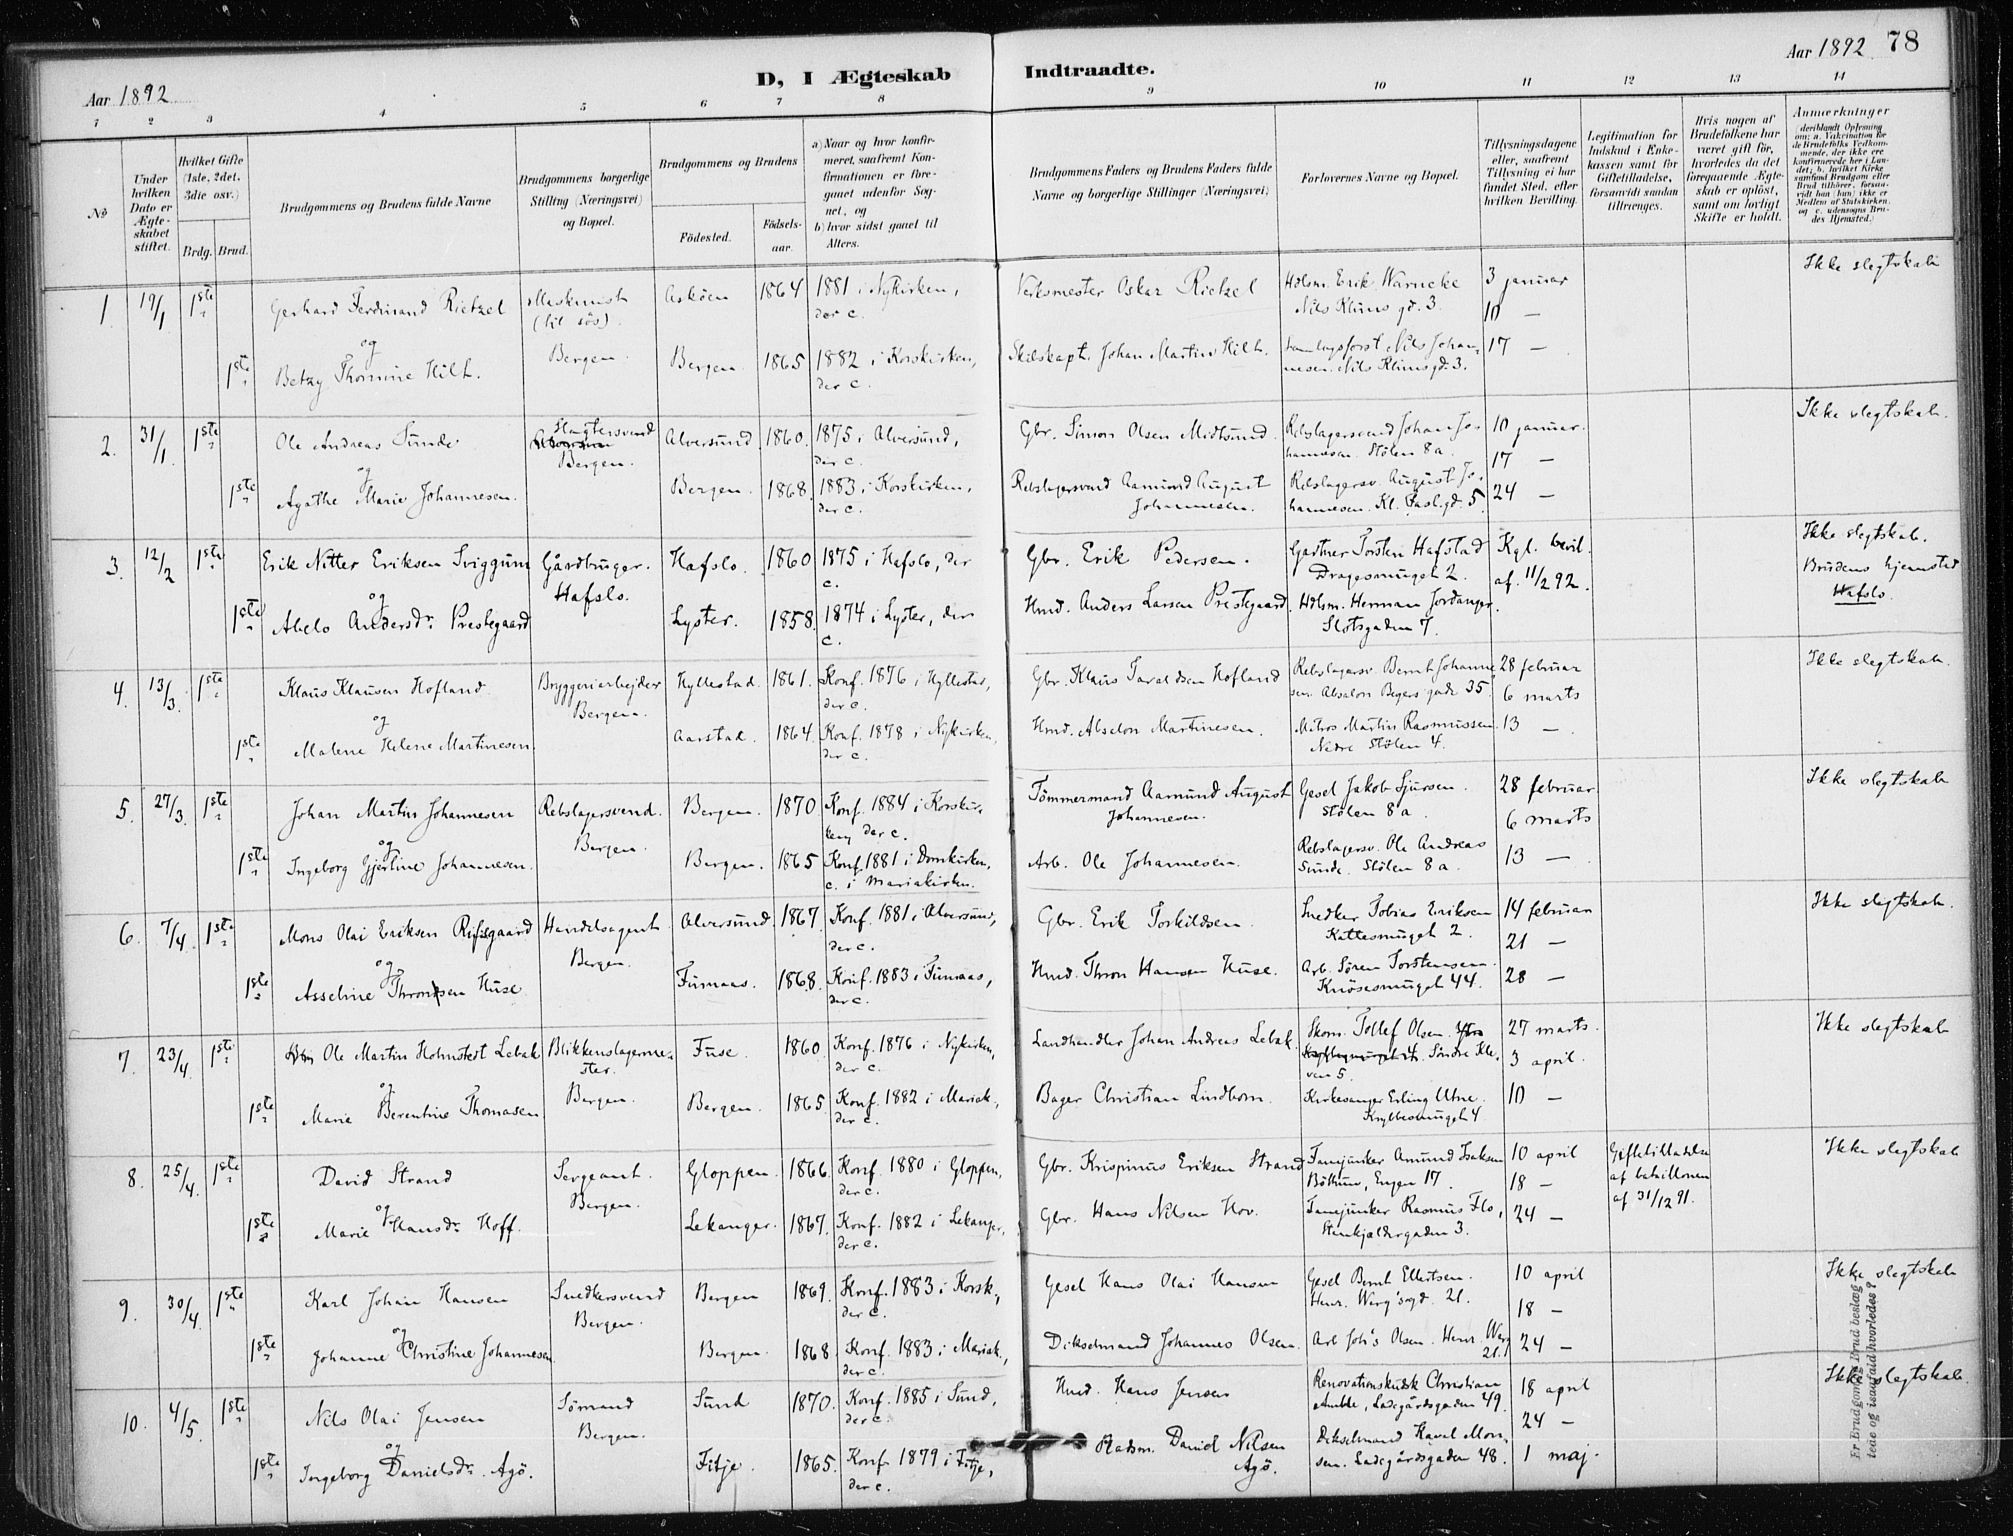 Aar 1892
D, I Ægteskab Indtraadte.
Aar 1892 78
1 2 3 4 5 6 7 8 9 10 11 12 13 14
No
Under hvilken Dato er Ægteskabet stiftet.
Hvilket Gifte (1ste, 2det, 3die osv.)
Brdg. Brud.
Brudgommens og Brudens fulde Navne
Brudgommens borgerlige Stilling (Næringsvei) og Bopæl.
Brudgommens og Brudens
Födested. Födselsaar.
a) Naar og hvor konfirmeret, saafremt Konfirmationen er foregaaet udenfor Sognet, og
b) hvor sidst gaaet til Alters.
Brudgommens Faders og Brudens Faders fulde Navne og borgerlige Stillinger (Næringsvei)
Forlovernes Navne og Bopæl.
Tillysningsdagene eller, saafremt Tillysning ei har fundet Sted, efter hvilken Bevilling.
Legitimation for Indskud i Enkekassen samt for Giftetilladelse, forsaavidt saadan tiltrænges.
Hvis nogen af Brudefolkene har været gift för, hvorledes da det foregaaende Ægteskab er oplöst, samt om lovligt Skifte er holdt.
Anmærkninger
(deriblandt Oplysning om: a. Vakcination for de Brudefolks Vedkommende, der ikke ere konfirmerede her i Landet; b. hvilket Kirkesamfund Brudgom eller Brud tilhörer, forsaavidt han (hun) ikke er Medlem af Statskirken, og c. udensogns Brudes Hjemsted.)
1. 19/1 1ste Gerhard Ferdinand Rietzel Maskinist (til sös). Bergen. Askøen 1864 1881 i Nykirken, der c. Verksmester Oskar Rietzel Hdlsm. Erik Warncke Nils Klims gd. 3. 3 januar 10 — Ikke slegtskab
og
1ste Betzy Thomine Hilt. Bergen. 1865 1882 i Korskirken, der c. Skibskapt. Johan Martin Hilt. Nils Johannesen. Nils Klimsgd. 3. 17 —
2. 31/1 1ste Ole Andreas Sunde Slagtersvend Bergen. Alversund 1860. 1875 i Alversund, der c. Gbr. Simon Olsen Midtsund. Rebslagersvend Johan Johannesen. Stölen 8a. 10 januar. 17 — Ikke slegtskab.
og
1ste Agathe Marie Johannesen. Bergen. 1868. 1883 i Korskirken, der c. Rebslagersvend Aamund August Johannesen. Rebslagersv. August Johannesen. Kl. 5. 24 —
3. 12/2 1ste Erik Nitter Eriksen Sviggum Gårdbruger. Hafslo. Hafslo. 1860 1875 i Hafslo, der c. Gbr. Erik Pedersen. Gartner Torsten Hafstad Dragesmuget 2. Kgl. bevil. af. 11/2 92. Ikke slegtskab. Brudens hjemsted Hafslo.
og
1ste Abelo Andersdr. Prestegaard Lyster. 1858. 1874 i Lyster, der c. Hmd. Anders Larsen Prestegaard. Hdlsm. Herman Jordanger. Slotsgaden 7.
4. 13/3. 1ste Klaus Klausen Hofland. Bryggeriarbejder Bergen. Hyllestad. 1861. Konf. 1876 i Hyllestad, der c. Gbr. Klaus Hofland Rebslagersv. Bernt Johannesen. Absalon Beyers gade 35. 28 februar 6 marts Ikke slegtskab.
og
1ste Malene Helene Martinesen. Aarstad. 1864. Konf. 1878 i Nykirken, der c. Hmd. Abselon Martinesen. Matros Martin Rasmussen. Nedre Stölen 4. 13 —
5. 27/3. 1ste Johan Martin Johannesen Rebslagersvend. Bergen. Bergen. 1870 Konf. 1884 i Korskirken, der c. Tömmermand Aamund August Johannesen. Gesel Jakob Sjursen. Stölen 8a. 28 februar 6 marts Ikke slegtskab
og
1ste Ingeborg Gjertine Johannesen. Bergen. 1865 Konf. 1881 i Domkirken, c. i Mariakirken. Arb. Ole Johannesen. Rebslagersv. Ole Andreas Sunde. Stölen 8a. 13 —
6. 7/4. 1ste Mons Olai Eriksen Handelsagent Bergen. Alversund. 1867. Konf. 1881 i Alversund, der c. Gbr. Erik Torkildsen. Snedker Tobias Eriksen Kattesmuget 2. 14 februar 21 — Ikke slegtskab.
og
1ste Asseline Thronsen Huse. Finnaas. 1868. Konf. 1883 i Finnaas, der c. Hmd. Thron Hansen Huse. Arb. Sören Torstensen. Knösesmuget 44. 28 —
7. 23/4. 1ste Ole Martin Holmstedt Lebak Blikkenslagermester. Bergen. Fuse. 1860. Konf. 1876 i Nykirken, der c. Landhandler Johan Andreas Lebak. Skom. Tollef Olsen. Söndre Kleven 5. 27 marts. 3 april. Ikke slegtskab
og
1ste Marie Berentine Thomasen. Bergen. 1865. Konf. 1882 i Mariak., der c. Bager Christian Lindbom. Kirkesanger Erling Utne. Krybbesmuget 4. 10 —
8. 25/4. 1ste David Strand Sergeant. Bergen. Gloppen. 1866. Konf. 1880 i Gloppen, der c. Gbr. Krispinus Eriksen Strand Fanejunker Amund Isaksen Böthun, Engen 17. 10 april 18 — Giftetilladelse af bataillonen af 31/12 91. Ikke slegtskab
og
1ste Marie Hansdr. Hoff. Lekanger. 1867. Konf. 1882 i Lekanger, der c. Gbr. Hans Nilsen Hov. Fanejunker Rasmus Flo, Stenkjældergaden 3. 24 —
9. 30/4. 1ste Karl Johan Hansen Snedkersvend Bergen. Bergen 1869. Konf. 1883 i Korsk., der c. Gesel Hans Olai Hansen Gesel Bernt Ellertsen. Henr. Werg'sgd. 21. 10 april 18 — Ikke slegtskab
og
1ste Johanne Christine Johannesen. Bergen. 1868. Konf. 1883 i Mariak., der c. Dikselmand Johannes Olsen. Arb. Joh's Olsen. Henr. Werg. 21. 24 —
10. 4/5. 1ste Nils Olai Jensen Sömand Bergen. Sund 1870. Konf. 1885 i Sund, der c. Hmd. Hans Jensen Renovationskusk Christian Amble, Ladegårdsgaden 49. 18 april 24 — Ikke slegtskab.
og
1ste Ingeborg Danielsdr. Agö. Fitje. 1865. Konf. 1879 i Fitje, der c. Pladsm. Daniel Nilsen Agö. Dikselmand Monsen. Ladegårdsgaden 48. 1 maj.
Er Brudgom og Brud beslægtede og isaafald hvorledes?